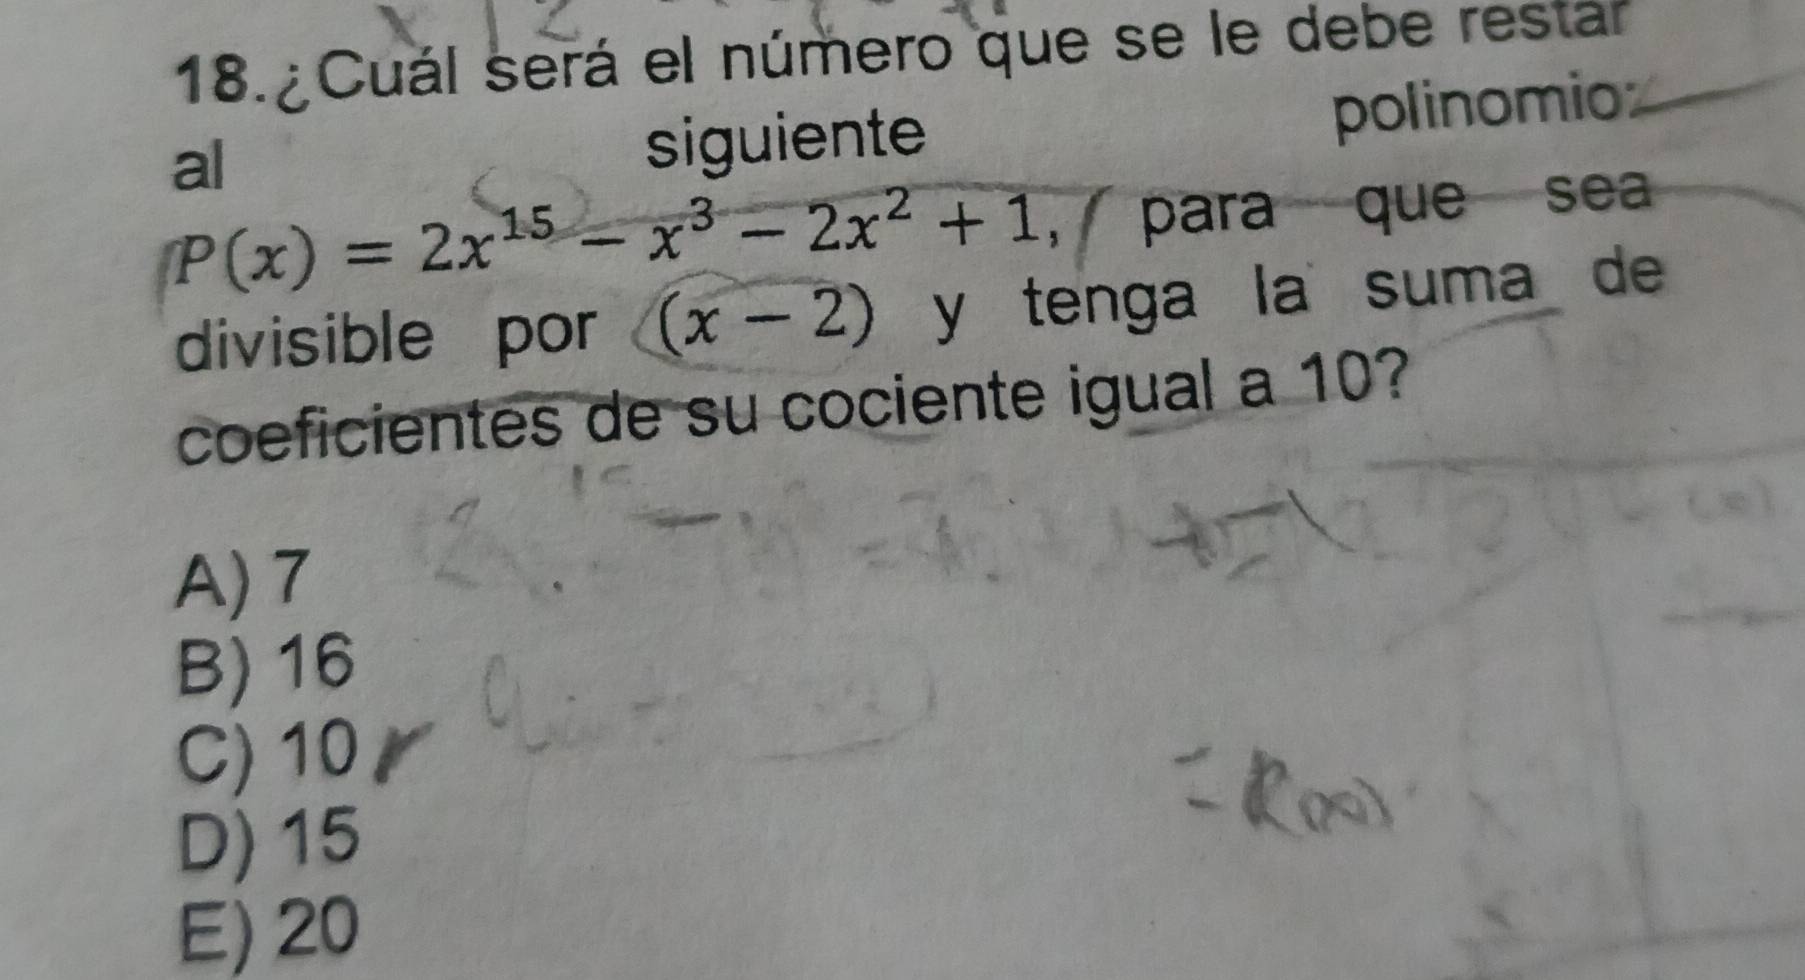 18.¿Cuál será el número que se le debe restar
al siguiente polinomio:
P(x) = 2x¹⁵ − x³ − 2x² + 1, para que sea
divisible por (x − 2) y tenga la suma de
coeficientes de su cociente igual a 10?
A) 7
B) 16
C) 10
D) 15
E) 20
= R(x)